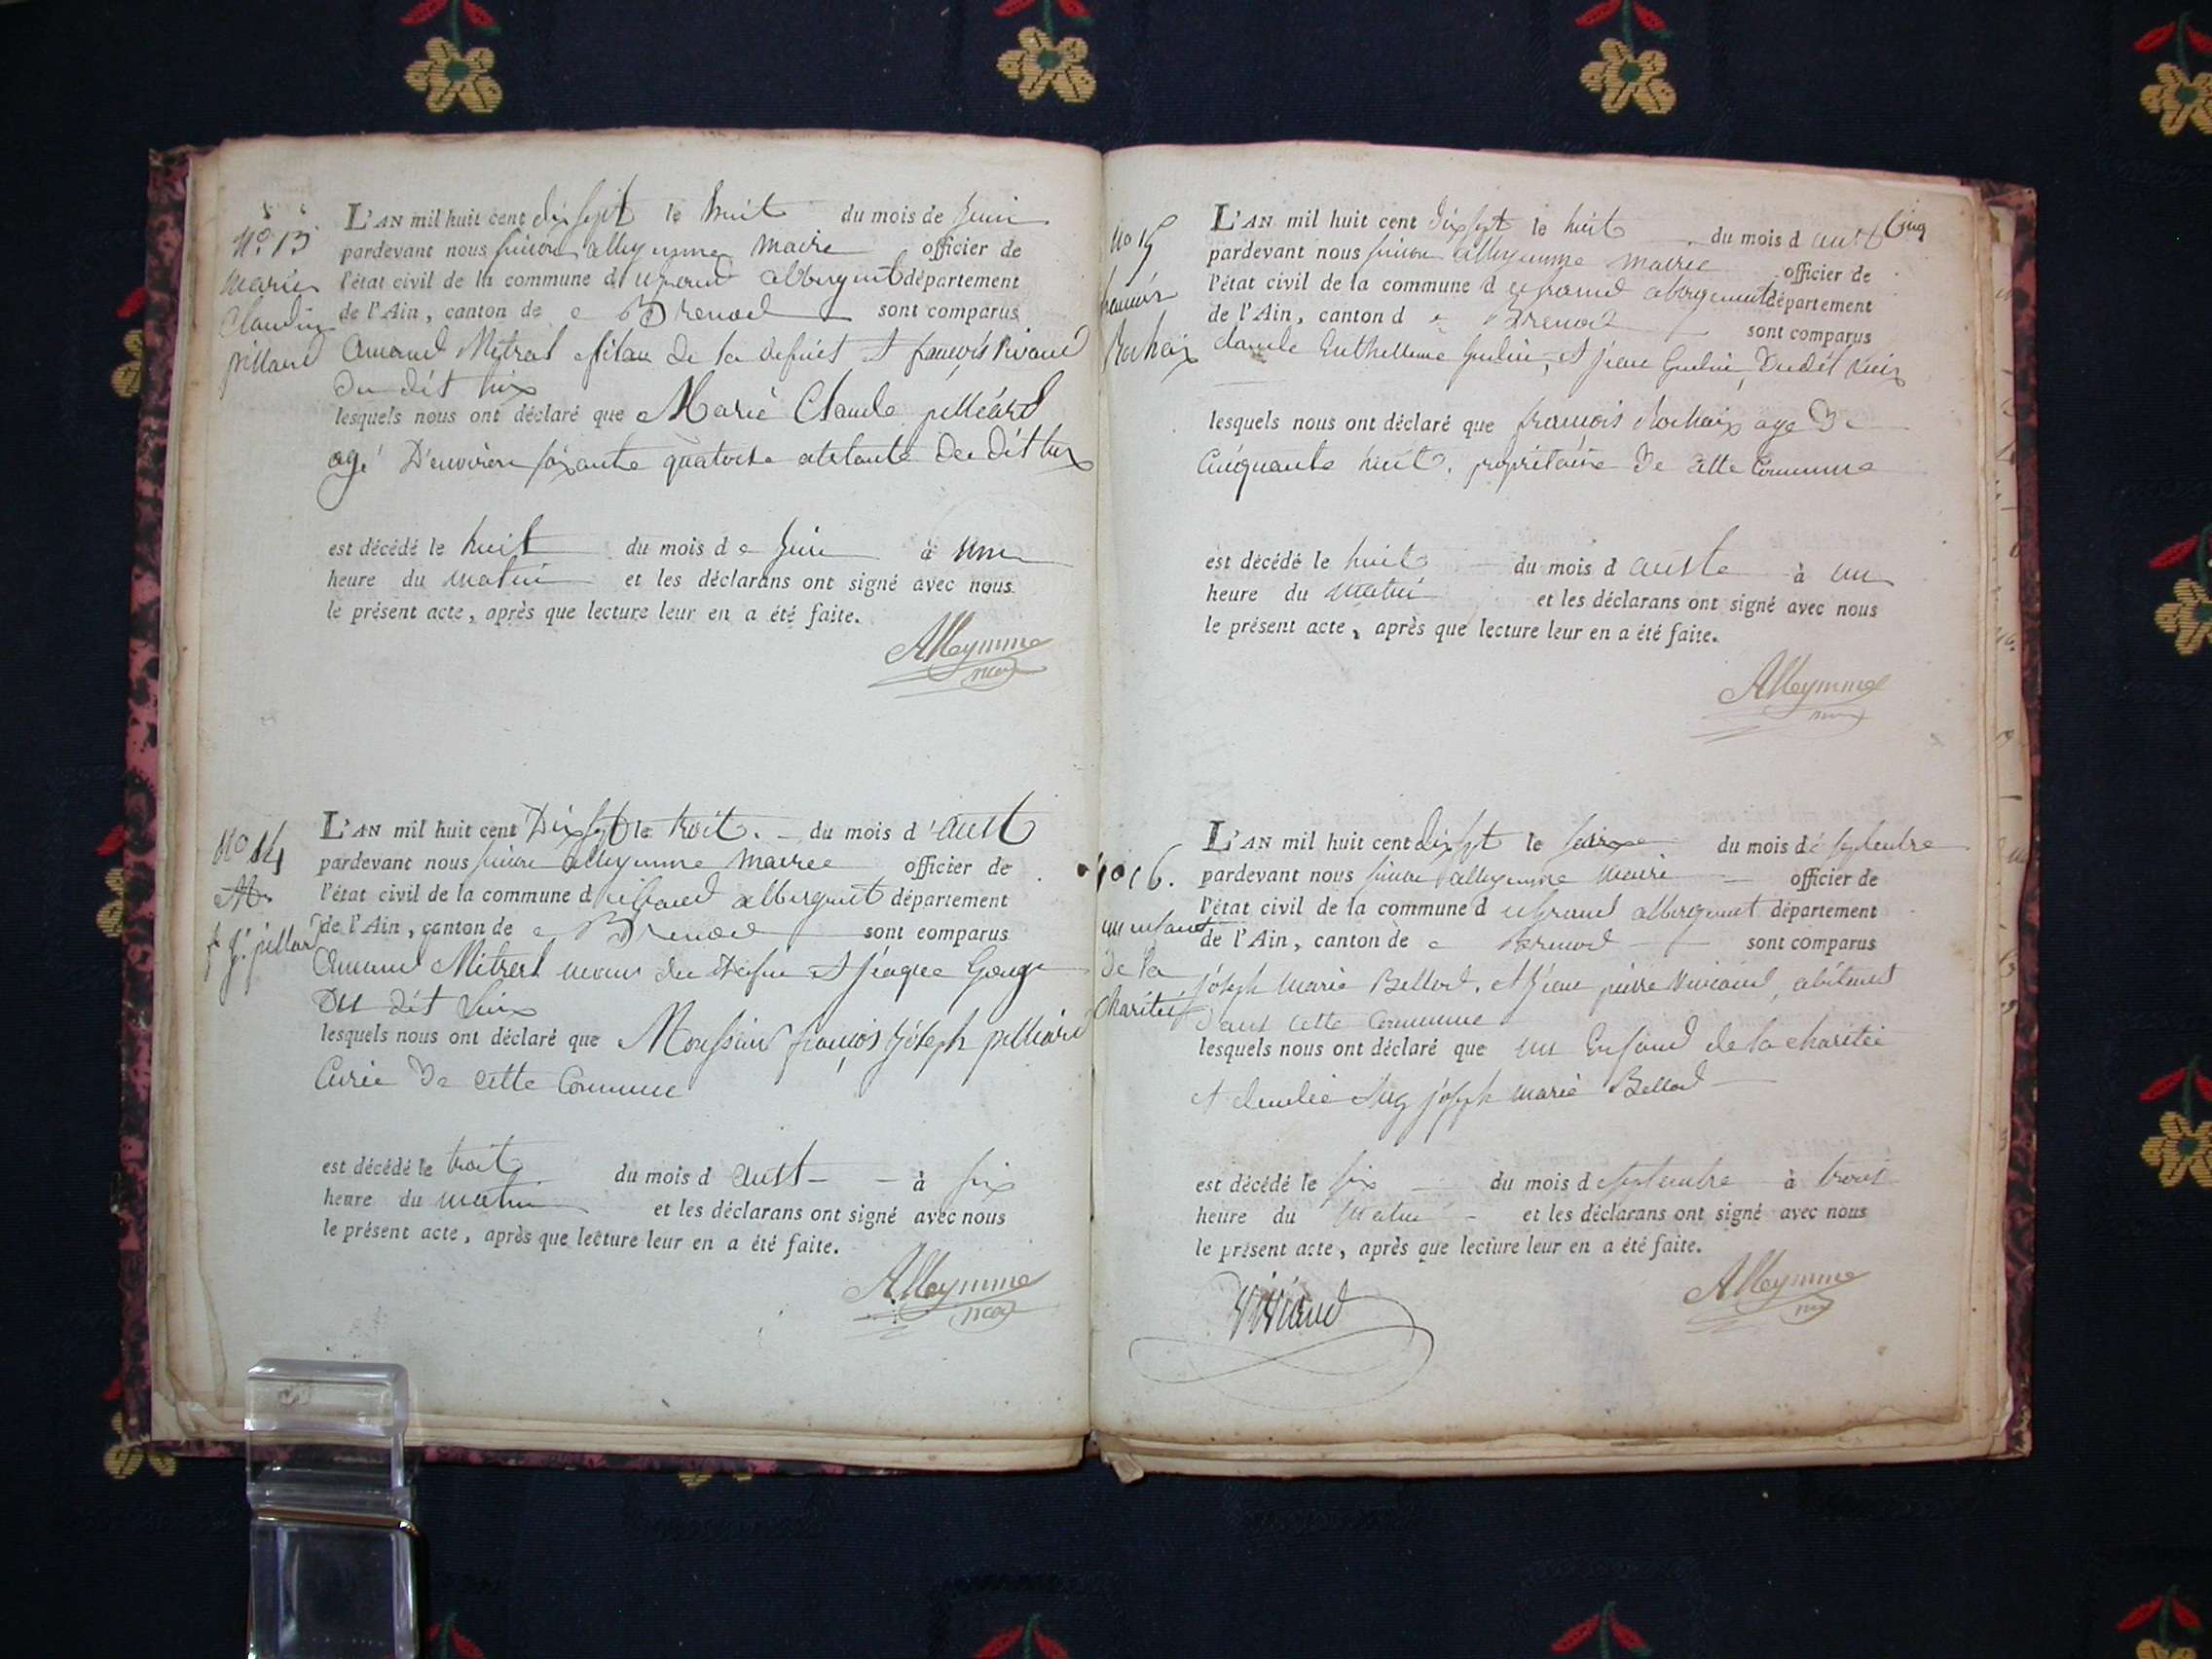 N° 13
marie
Claudine
pilland
L'AN mil huit cent dix sept le huit du mois de Juin
pardevant nous alleymme Maire officier de
l'état civil de la commune d albergement département
de l'Ain, canton de Brenod sont comparus
Amand Mitral de la defuet et françois Vivand
du dit lix
lesquels nous ont déclaré que Marie Claude pelléard
agé D'environ soixante quatorse du dit lux
est décédé le huit du mois de Juin à une
heure du matin et les déclarans ont signé avec nous
le présent acte, après que lecture leur en a été faite.
Alleymme
N° 14
L'AN mil huit cent Dix sept le troit du mois d'aust
pardevant nous alleymme Mairee officier de
l'état civil de la commune d albergment département
de l'Ain, canton de Brenod sont comparus
Amand Mitral du et
Du dit
lesquels nous ont déclaré que françois Joseph pelléard
Curée De cette Commune
est décédé le troit du mois d aust à six
heure du matin et les déclarans ont signé avec nous
le présent acte, après que lecture leur en a été faite.
Alleymme
Cinq
N° 15
françois
Rochaix
L'AN mil huit cent dix sept le huit du mois d aust
pardevant nous alleymme mairee officier de
l'état civil de la commune d abergement département
de l'Ain, canton d e Brenod sont comparus
claude et jean Dudit
lesquels nous ont déclaré que françois Rochaix age De
Cinquante huit, propriétaire De cette Commune
est décédé le huit du mois d auste à un
heure du matin et les déclarans ont signé avec nous
le présent acte, après que lecture leur en a été faite.
Alleymme
N° 16.
un enfant
de la
charitée
L'AN mil huit cent dix sept le du mois de septembre
pardevant nous alleymme maire officier de
l'état civil de la commune d albergement département
de l'Ain, canton de Brenod sont comparus
joseph marie Bellod, et jean pierre Viviand, abitant
dans cette Commune
lesquels nous ont déclaré que un Enfand de la charitée
et joseph marie Bellod
est décédé le six du mois d septembre à trois
heure du matin et les déclarans ont signé avec nous
le présent acte, après que lecture leur en a été faite.
Viviand
Alleymme